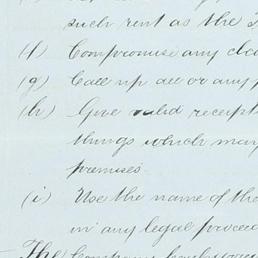 such rent as the
(f) Compromise any
(g) Call up all or any
(h) Give valid receipt
things which may
premises.
(i) Use the name of the
in any legal proceed
The Company